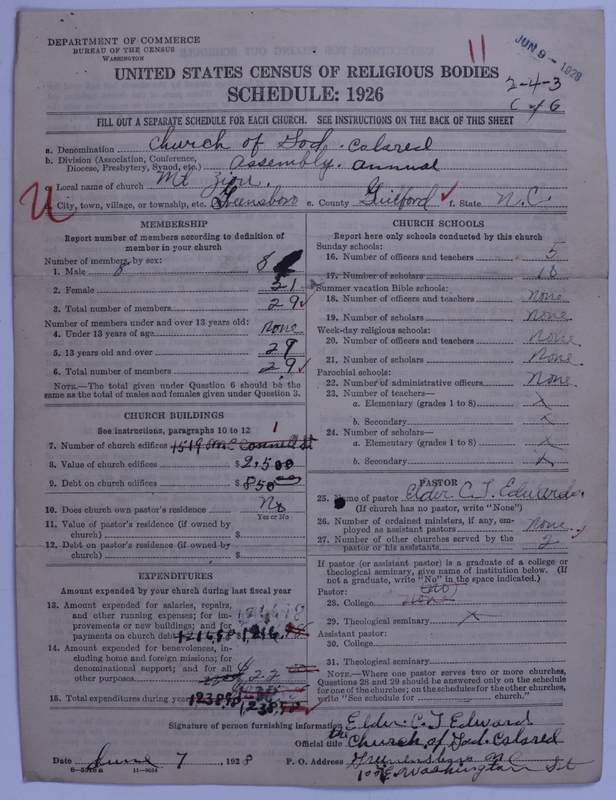 DEPARTMENT OF COMMERCE
BUREAU OF THE CENSUS
WASHINGTON
11
JUN 9 - 1928
UNITED STATES CENSUS OF RELIGIOUS BODIES
SCHEDULE: 1926
2-4-3
C of G
FILL OUT A SEPARATE SCHEDULE FOR EACH CHURCH. SEE INSTRUCTIONS ON THE BACK OF THIS SHEET
a. Denomination Church of God. Colored
b. Division (Association, Conference, Diocese, Presbytery, Synod, etc.) Assembly. annual
Local name of church Mt Zion.
City, town, village, or township, etc. Greensboro e. County Guilford f. State N.C.
MEMBERSHIP
Report number of members according to definition of
member in your church
Number of members, by sex:
1. Male 8 8
2. Female 21
3. Total number of members 29
Number of members under and over 13 years old:
4. Under 13 years of age none
5. 13 years old and over 29
6. Total number of members 29
NOTE.—The total given under Question 6 should be the
same as the total of males and females given under Question 3.
CHURCH BUILDINGS
See instructions, paragraphs 10 to 12
7. Number of church edifices 1519 McConnell st 1
8. Value of church edifices $ 2,500
9. Debt on church edifices $ 850
10. Does church own pastor's residence No
Yes or No
11. Value of pastor's residence (if owned by
church) $
12. Debt on pastor's residence (if owned by
church) $
EXPENDITURES
Amount expended by your church during last fiscal year
13. Amount expended for salaries, repairs,
and other running expenses; for im-
provements or new buildings; and for
payments on church debt 1216.58 1,216.
14. Amount expended for benevolences, in-
cluding home and foreign missions; for
denominational support; and for all
other purposes 22
15. Total expenditures during year 1238
CHURCH SCHOOLS
Report here only schools conducted by this church
Sunday schools:
16. Number of officers and teachers 5
17. Number of scholars 18
Summer vacation Bible schools:
18. Number of officers and teachers none
19. Number of scholars none
Week-day religious schools:
20. Number of officers and teachers None
21. Number of scholars None
Parochial schools:
22. Number of administrative officers None
23. Number of teachers—
a. Elementary (grades 1 to 8) x
b. Secondary x
24. Number of scholars—
a. Elementary (grades 1 to 8) x
b. Secondary x
PASTOR
25. Name of pastor Elder C. T. Edwards
(If church has no pastor, write "None")
26. Number of ordained ministers, if any, em-
ployed as assistant pastors None
27. Number of other churches served by the
pastor or his assistants 2
If pastor (or assistant pastor) is a graduate of a college or
theological seminary, give name of institution below. (If
not a graduate, write "No" in the space indicated.)
Pastor: (No)
28. College none
29. Theological seminary x
Assistant pastor:
30. College
31. Theological seminary
NOTE.—Where one pastor serves two or more churches,
Questions 28 and 29 should be answered only on the schedule
for one of the churches; on the schedules for the other churches,
write "See schedule for church."
Signature of person furnishing information Elder. C. T Edward
Official title Church of God. Colored
Date June 7, 1928 P. O. Address Greensboro N C
8-5020a 11-9054
E. Washington St